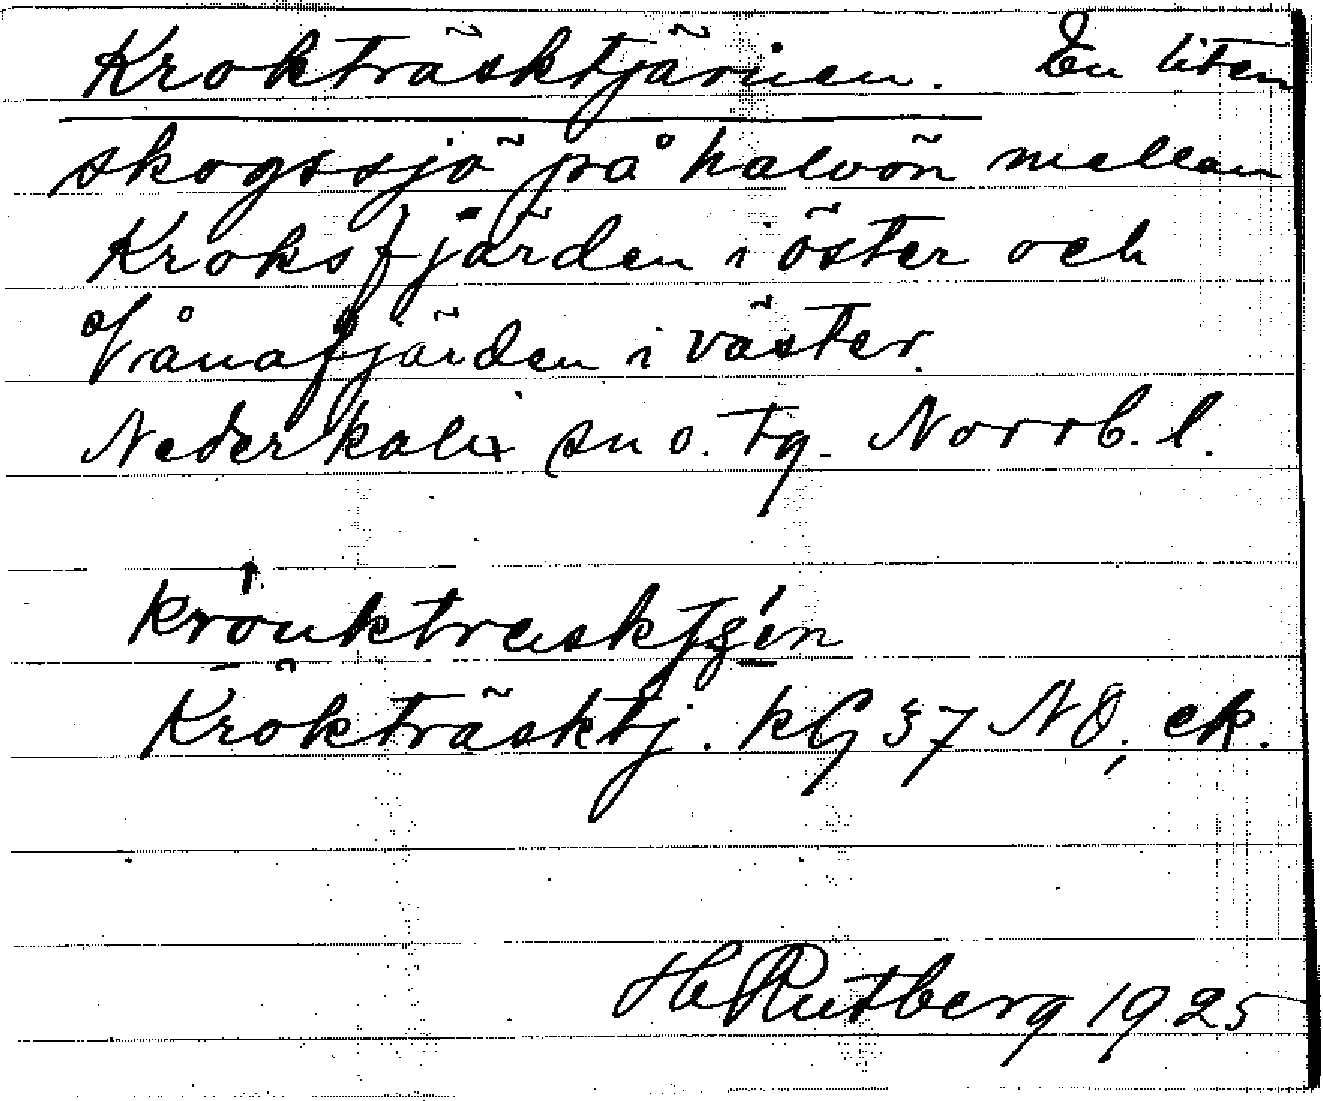 Krokträsktjärnen. En liten
skogssjö på halvön mellan
Kroksfjärden i öster och
Vånafjärden i väster.
Nederkalix sn o. tg. Norrb. l.
Krokträsktj. KG 37 NO, ek.
H Rutberg 1925